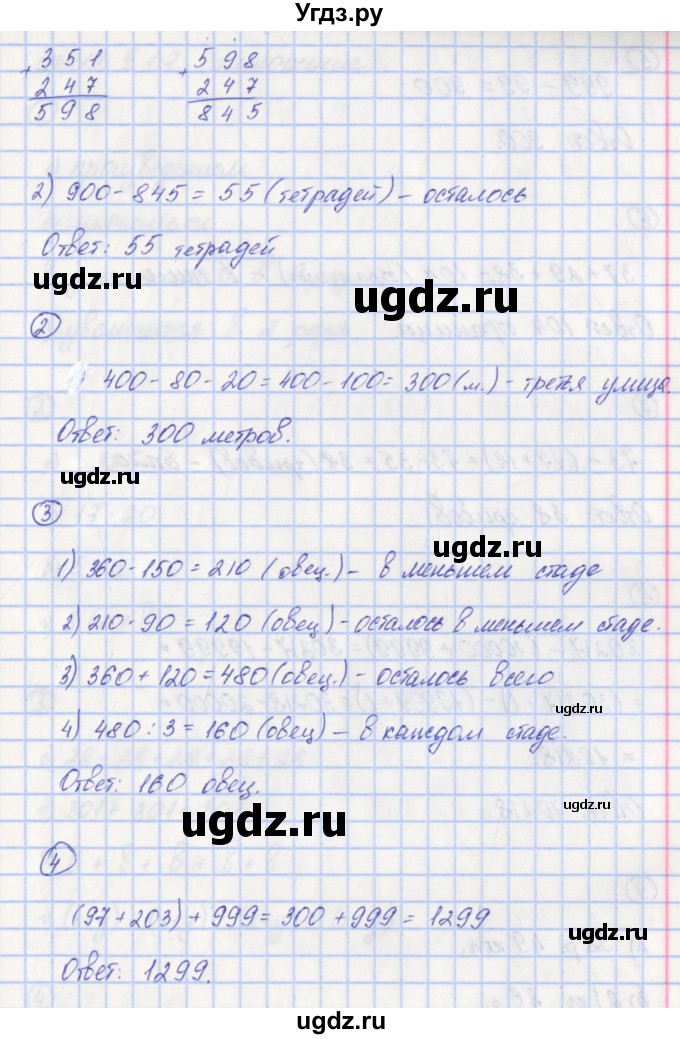 Угдз.ру
351 598
+ +
247 247
598 845
2) 900 - 845 = 55 (тетрадей) - осталось
Ответ: 55 тетрадей
ugdz.ru
ugdz.ru
2
1) 400 - 80 - 20 = 400 - 100 = 300 (м.) - третья улица.
Ответ: 300 метров.
ugdz.ru
3
ugdz.ru
1) 360 - 150 = 210 (овец.) - в меньшем стаде
2) 210 - 90 = 120 (овец) - осталось в меньшем стаде.
3) 360 + 120 = 480 (овец.) - осталось всего
4) 480 : 3 = 160 (овец) - в каждом стаде.
Ответ: 160 овец.
ugdz.ru
ugdz.ru
4
(97 + 203) + 999 = 300 + 999 = 1299
ugdz.ru
Ответ: 1299.
ugdz.ru